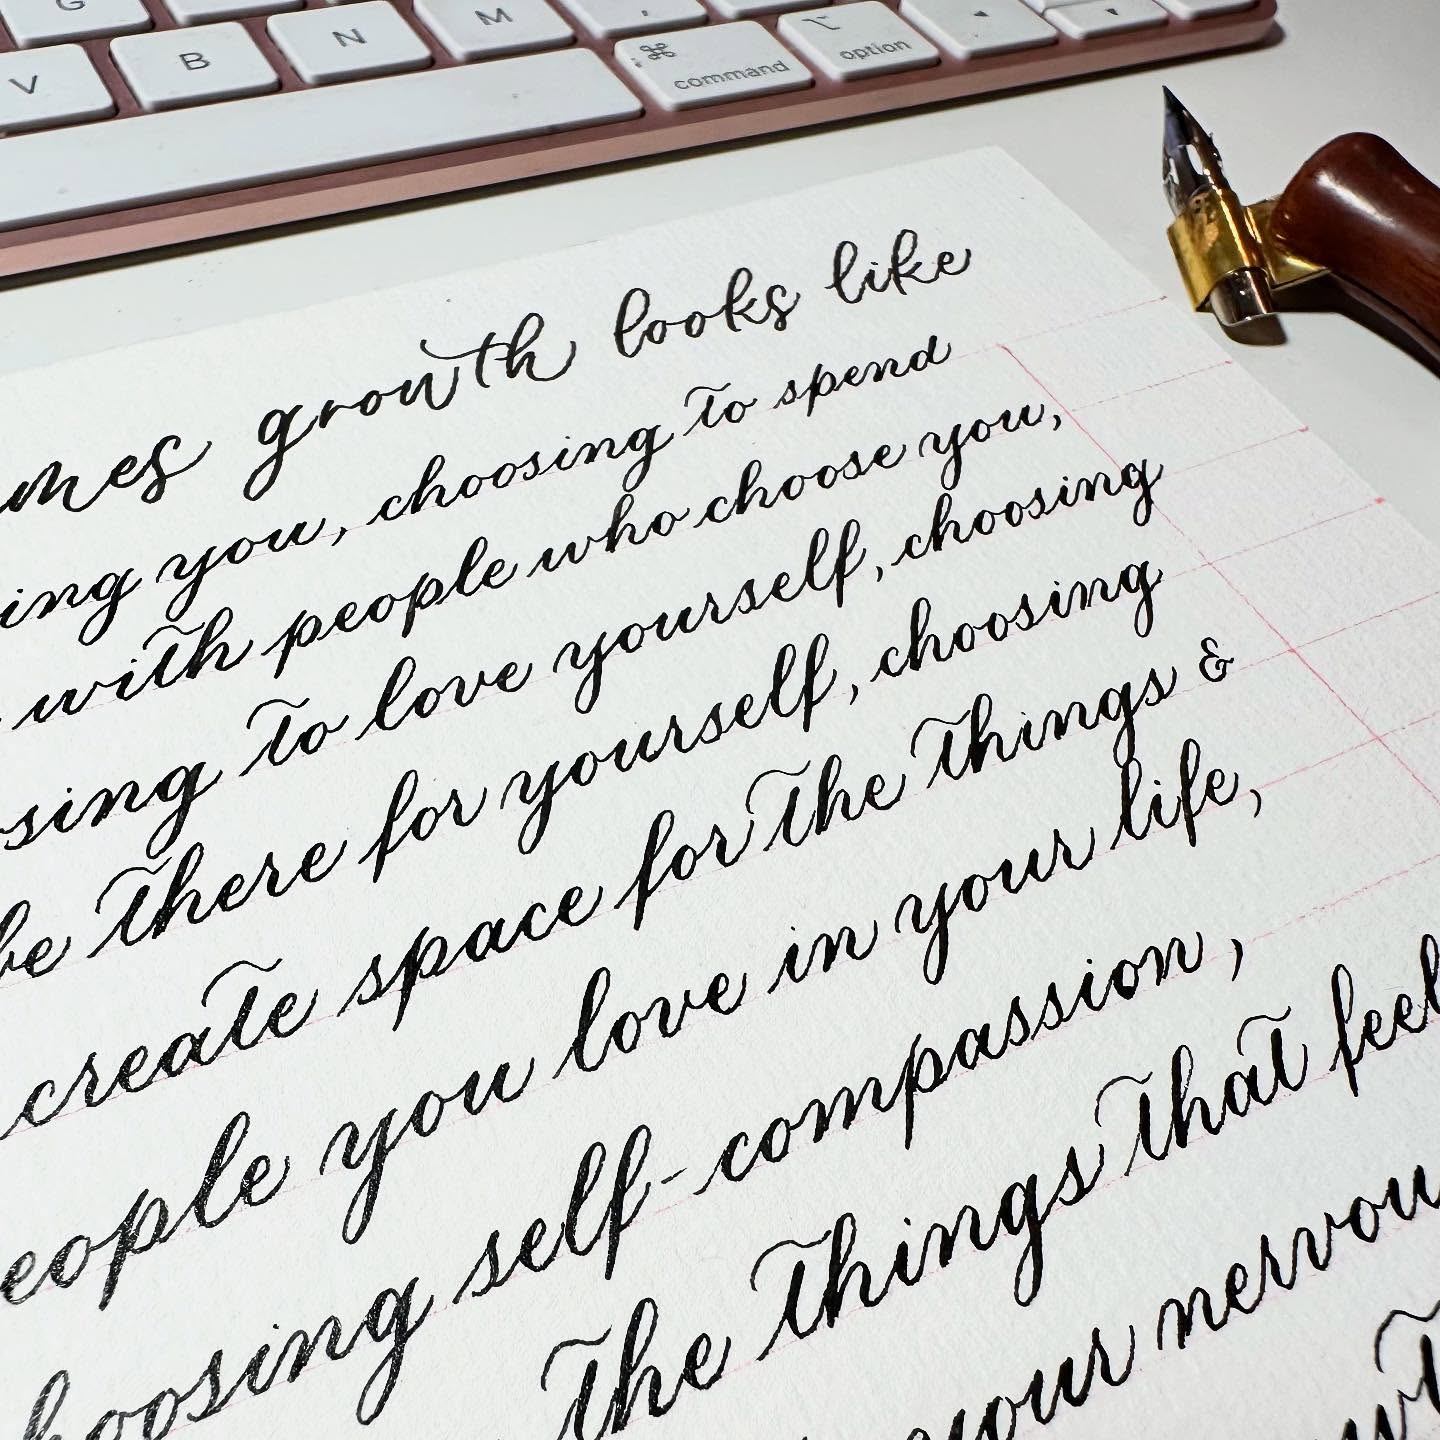 G
V B N M , ⌘ command ⌥ option
mes growth looks like
ing you, choosing to spend
with people who choose you,
sing to love yourself, choosing
be there for yourself, choosing
create space for the things &
eople you love in your life,
hoosing self-compassion,
the things that feel
your nervou